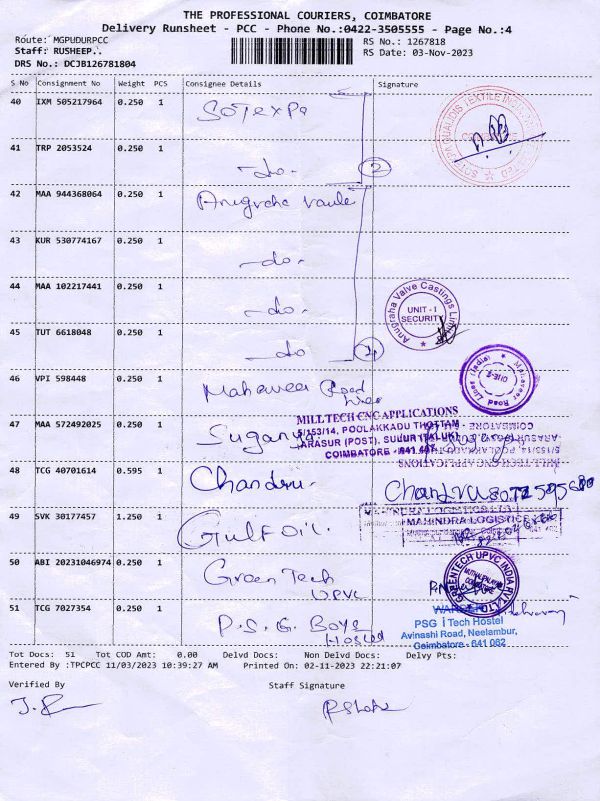 THE PROFESSIONAL COURIERS, COIMBATORE
Delivery Runsheet - PCC - Phone No.:0422-3505555 - Page No.:4
Route: MGPUDURPCC RS No.: 1267818
Staff: RUSHEEP.. RS Date: 03-Nov-2023
DRS No.: DCJB126781804
S No Consignment No Weight PCS Consignee Details Signature
40 IXM 505217964 0.250 1 Sotexpa
41 TRP 2053524 0.250 1 -do- 2
42 MAA 944368064 0.250 1 Anugraha Valve
43 KUR 530774167 0.250 1 -do-
44 MAA 102217441 0.250 1 -do-
Anugraha Valve Castings Limited
UNIT - I
SECURITY
45 TUT 6618048 0.250 1 -do
46 VPI 598448 0.250 1 Mahaveer Road
Lines
Mahaveer Road Lines (India)
MILLTECH CNC APPLICATIONS
5/153/14, POOLAKKADU THOTTAM
ARASUR (POST), SULUR (TALUK)
COIMBATORE - 641 407
47 MAA 572492025 0.250 1 Suganya
48 TCG 40701614 0.595 1 Chandru.
49 SVK 30177457 1.250 1 Gulf Oil.
MAHINDRA LOGISTICS
50 ABI 20231046974 0.250 1 Green Tech
UPVC
GREENTECH UPVC INDIA PVT LTD
51 TCG 7027354 0.250 1 P.S.G. Boys
Hostel
PSG iTech Hostel
Avinashi Road, Neelambur,
Coimbatore - 641 062
Tot Docs: 51 Tot COD Amt: 0.00 Delvd Docs: Non Delvd Docs: Delvy Pts:
Entered By :TPCPCC 11/03/2023 10:39:27 AM Printed On: 02-11-2023 22:21:07
Verified By Staff Signature